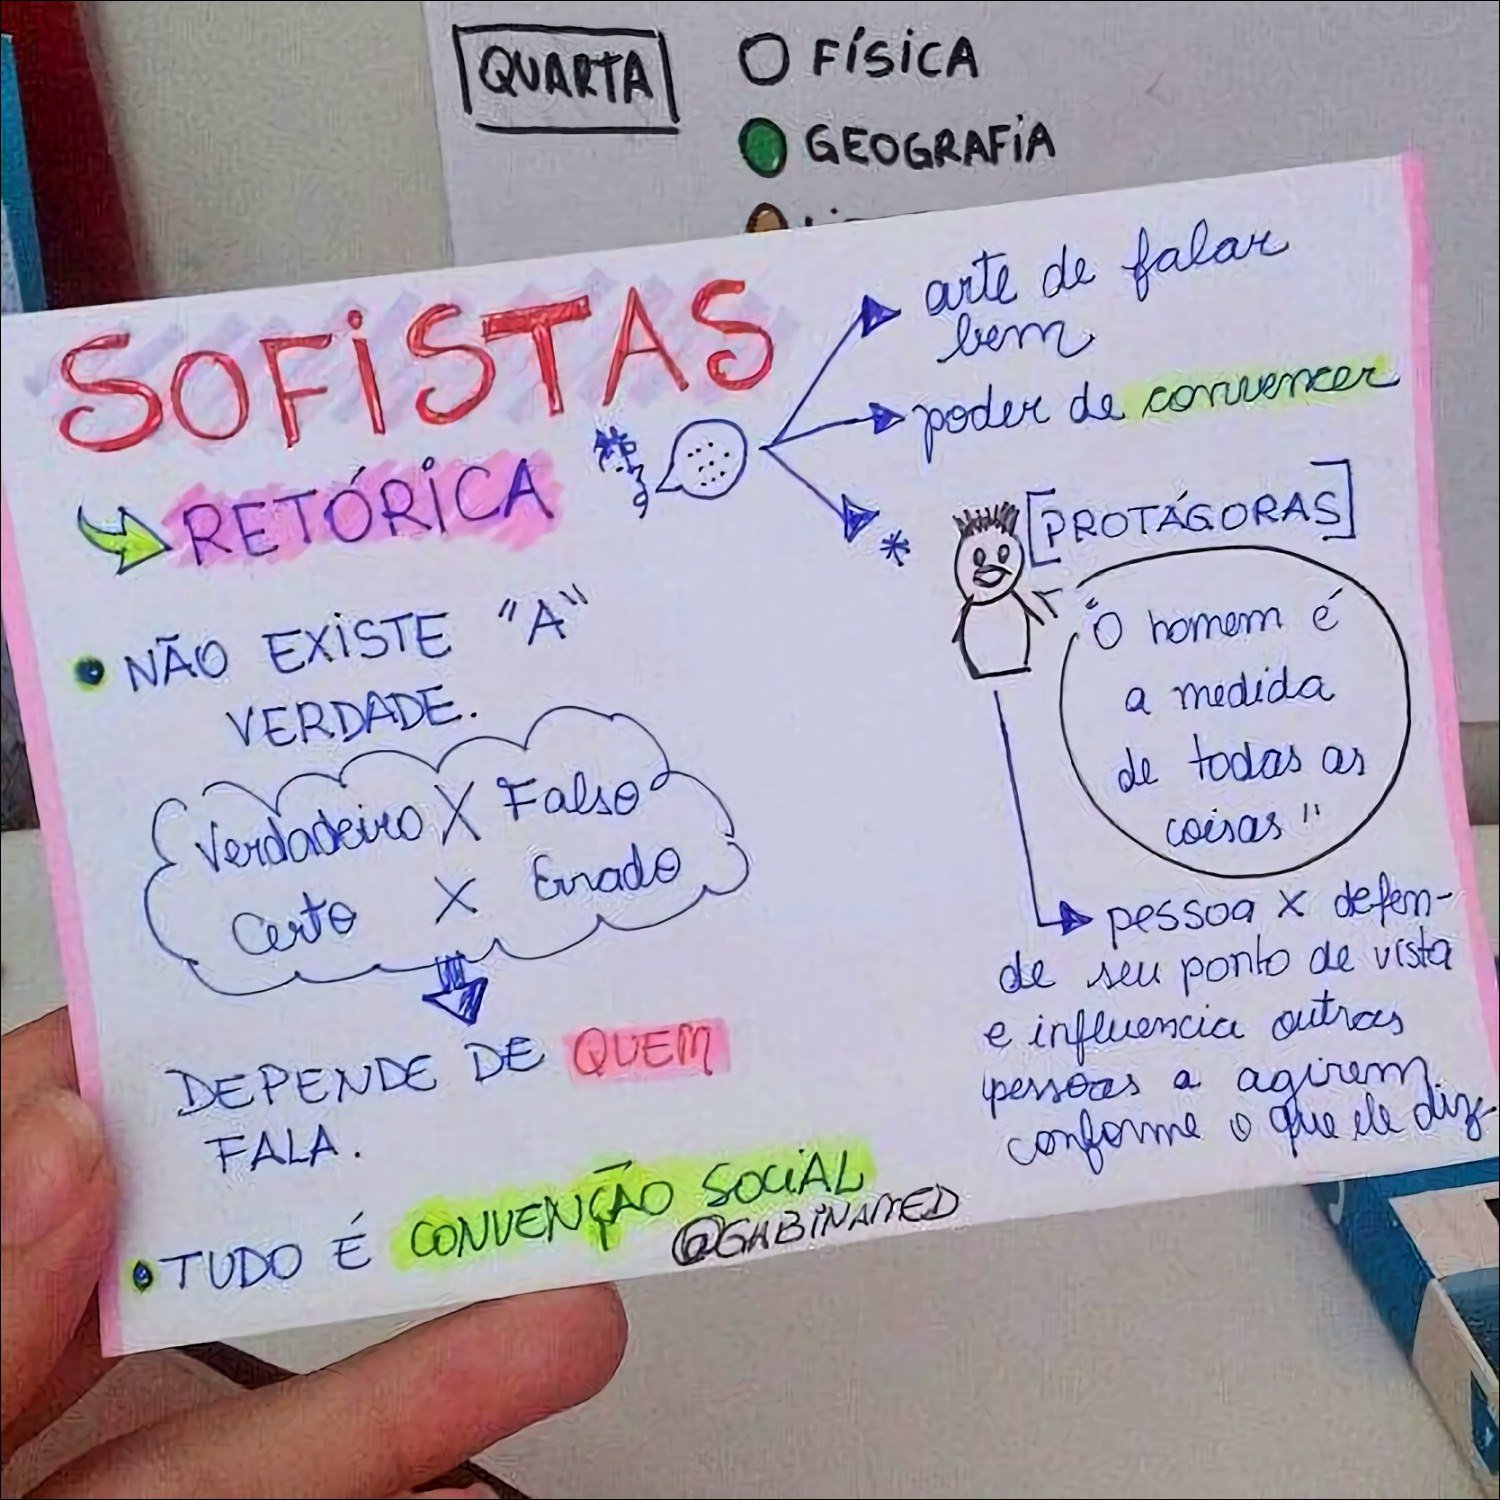 QUARTA
FÍSICA
GEOGRAFIA
SOFISTAS
RETÓRICA
arte de falar
bem
poder de convencer
*
• NÃO EXISTE "A"
VERDADE.
Verdadeiro X Falso
Certo X Errado
DEPENDE DE QUEM
FALA.
• TUDO É CONVENÇÃO SOCIAL
@GABINAMED
[PROTÁGORAS]
"O homem é
a medida
de todas as
coisas"
pessoa x defen-
de seu ponto de vista
e influencia outras
pessoas a agirem
conforme o que ele diz.